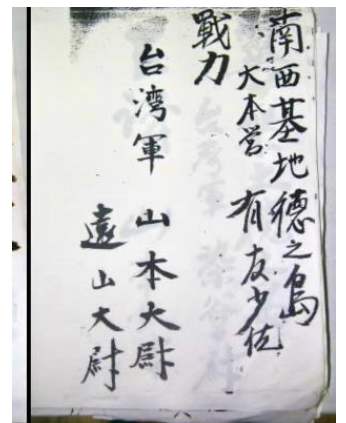 南西基地德之島
大本営 有友少佐
戰力
台湾軍 山本大尉
遠山大尉